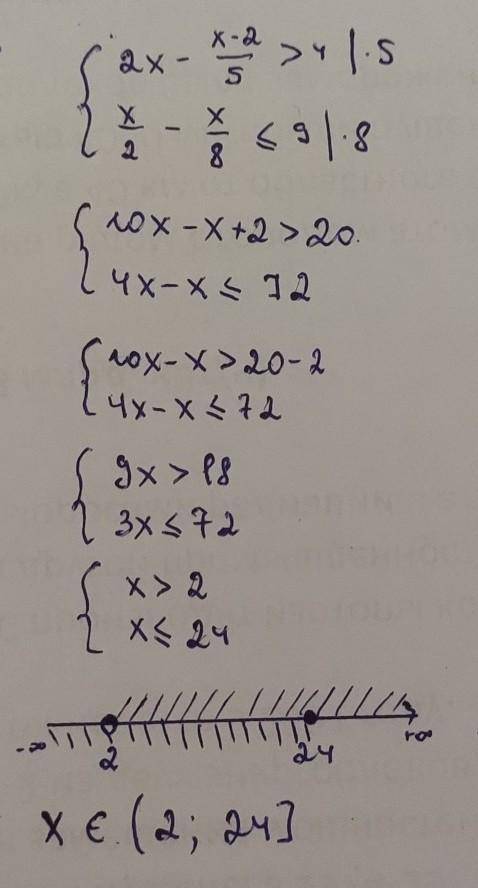 2x - (x-2)/5 > 4 |·5
x/2 - x/8 ≤ 9 |·8
10x - x + 2 > 20.
4x - x ≤ 72
10x - x > 20 - 2
4x - x ≤ 72
9x > 18
3x ≤ 72
x > 2
x ≤ 24
-∞ 2 24 +∞
X ∈ (2; 24]